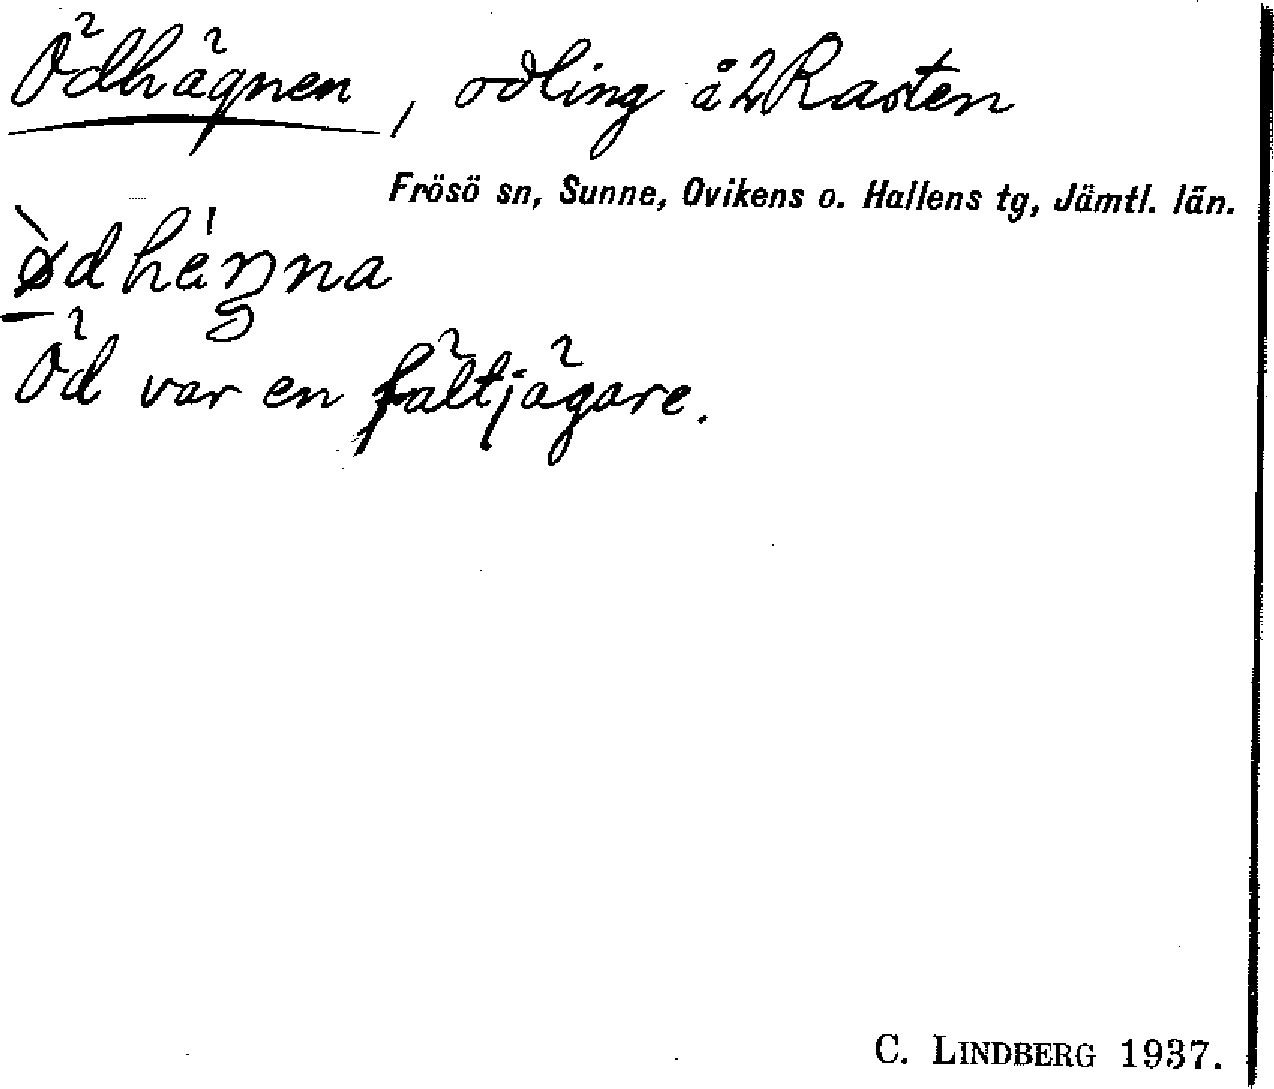 Ödhägnen, odling å 2 Rasten
Frösö sn, Sunne, Ovikens o. Hallens tg, Jämtl. län.
Öd var en fältjägare.
C. LINDBERG 1937.